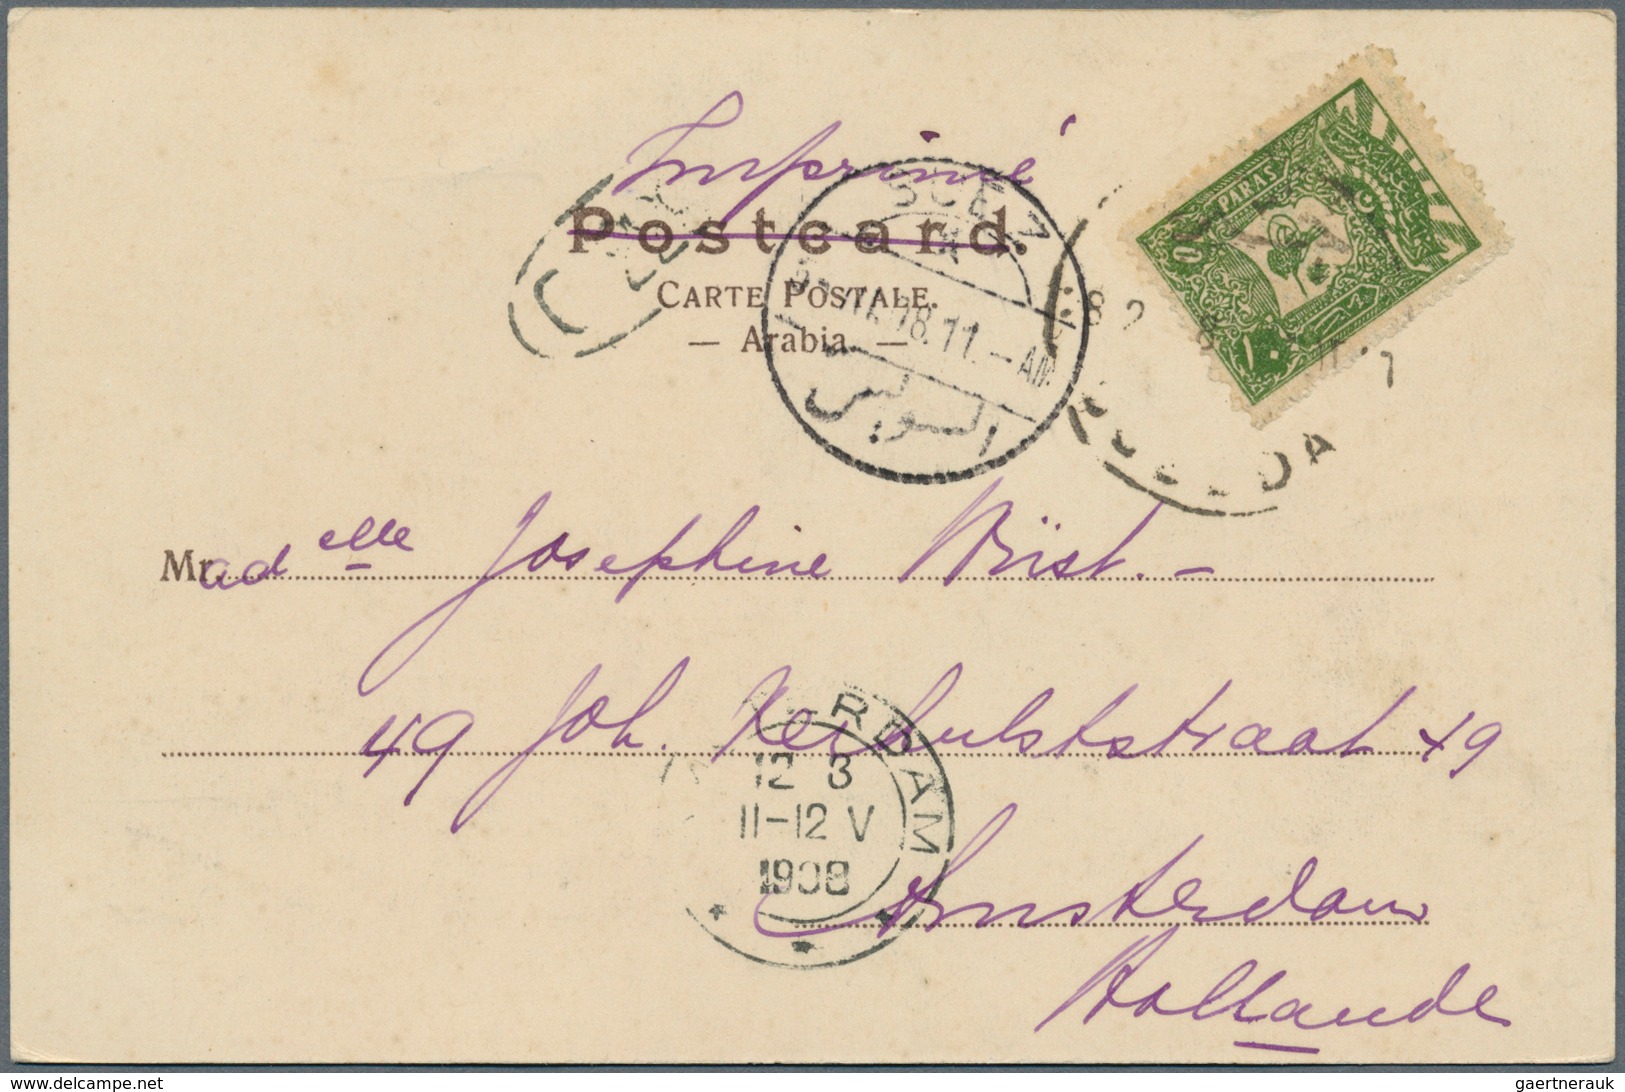 Imprimé
Postcard.
CARTE POSTALE.
— Arabia. —
SUEZ
11.-AM
السويس
10 PARAS
١٠
HODEIDA
Madelle Josephine Wüst.-
49 Joh. Verhulststraat 49
Amsterdam
Hollande
AMSTERDAM
12 3
11-12 V
1908
www.delcampe.net
gaertnerauk